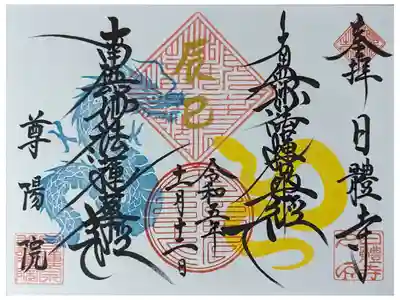 奉拝
日體寺
南無妙法蓮華経
辰巳
令和五年
十二月十二日
南無妙法蓮華経
尊陽院